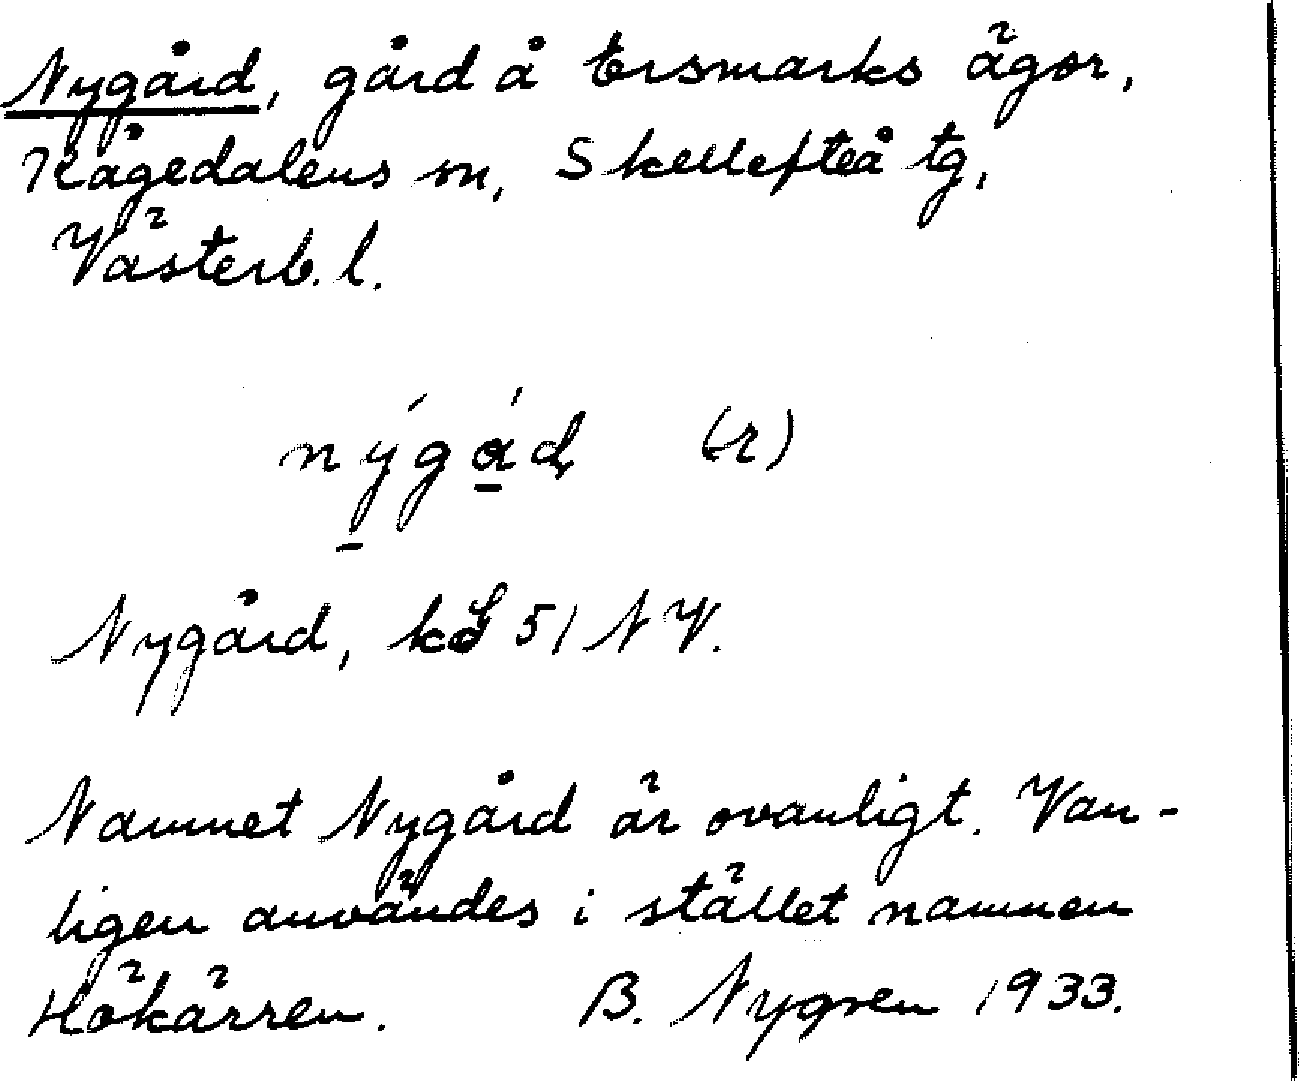 Nygård, gård å Ersmarks ägor,
Kågedalens sn, Skellefteå tg,
Västerb. l.
nýgá̱d (-r)
Nygård, 51 NV.
Namnet Nygård är ovanligt. Van-
ligen användes i stället namnen
Hökärren. B. Nygren 1933.